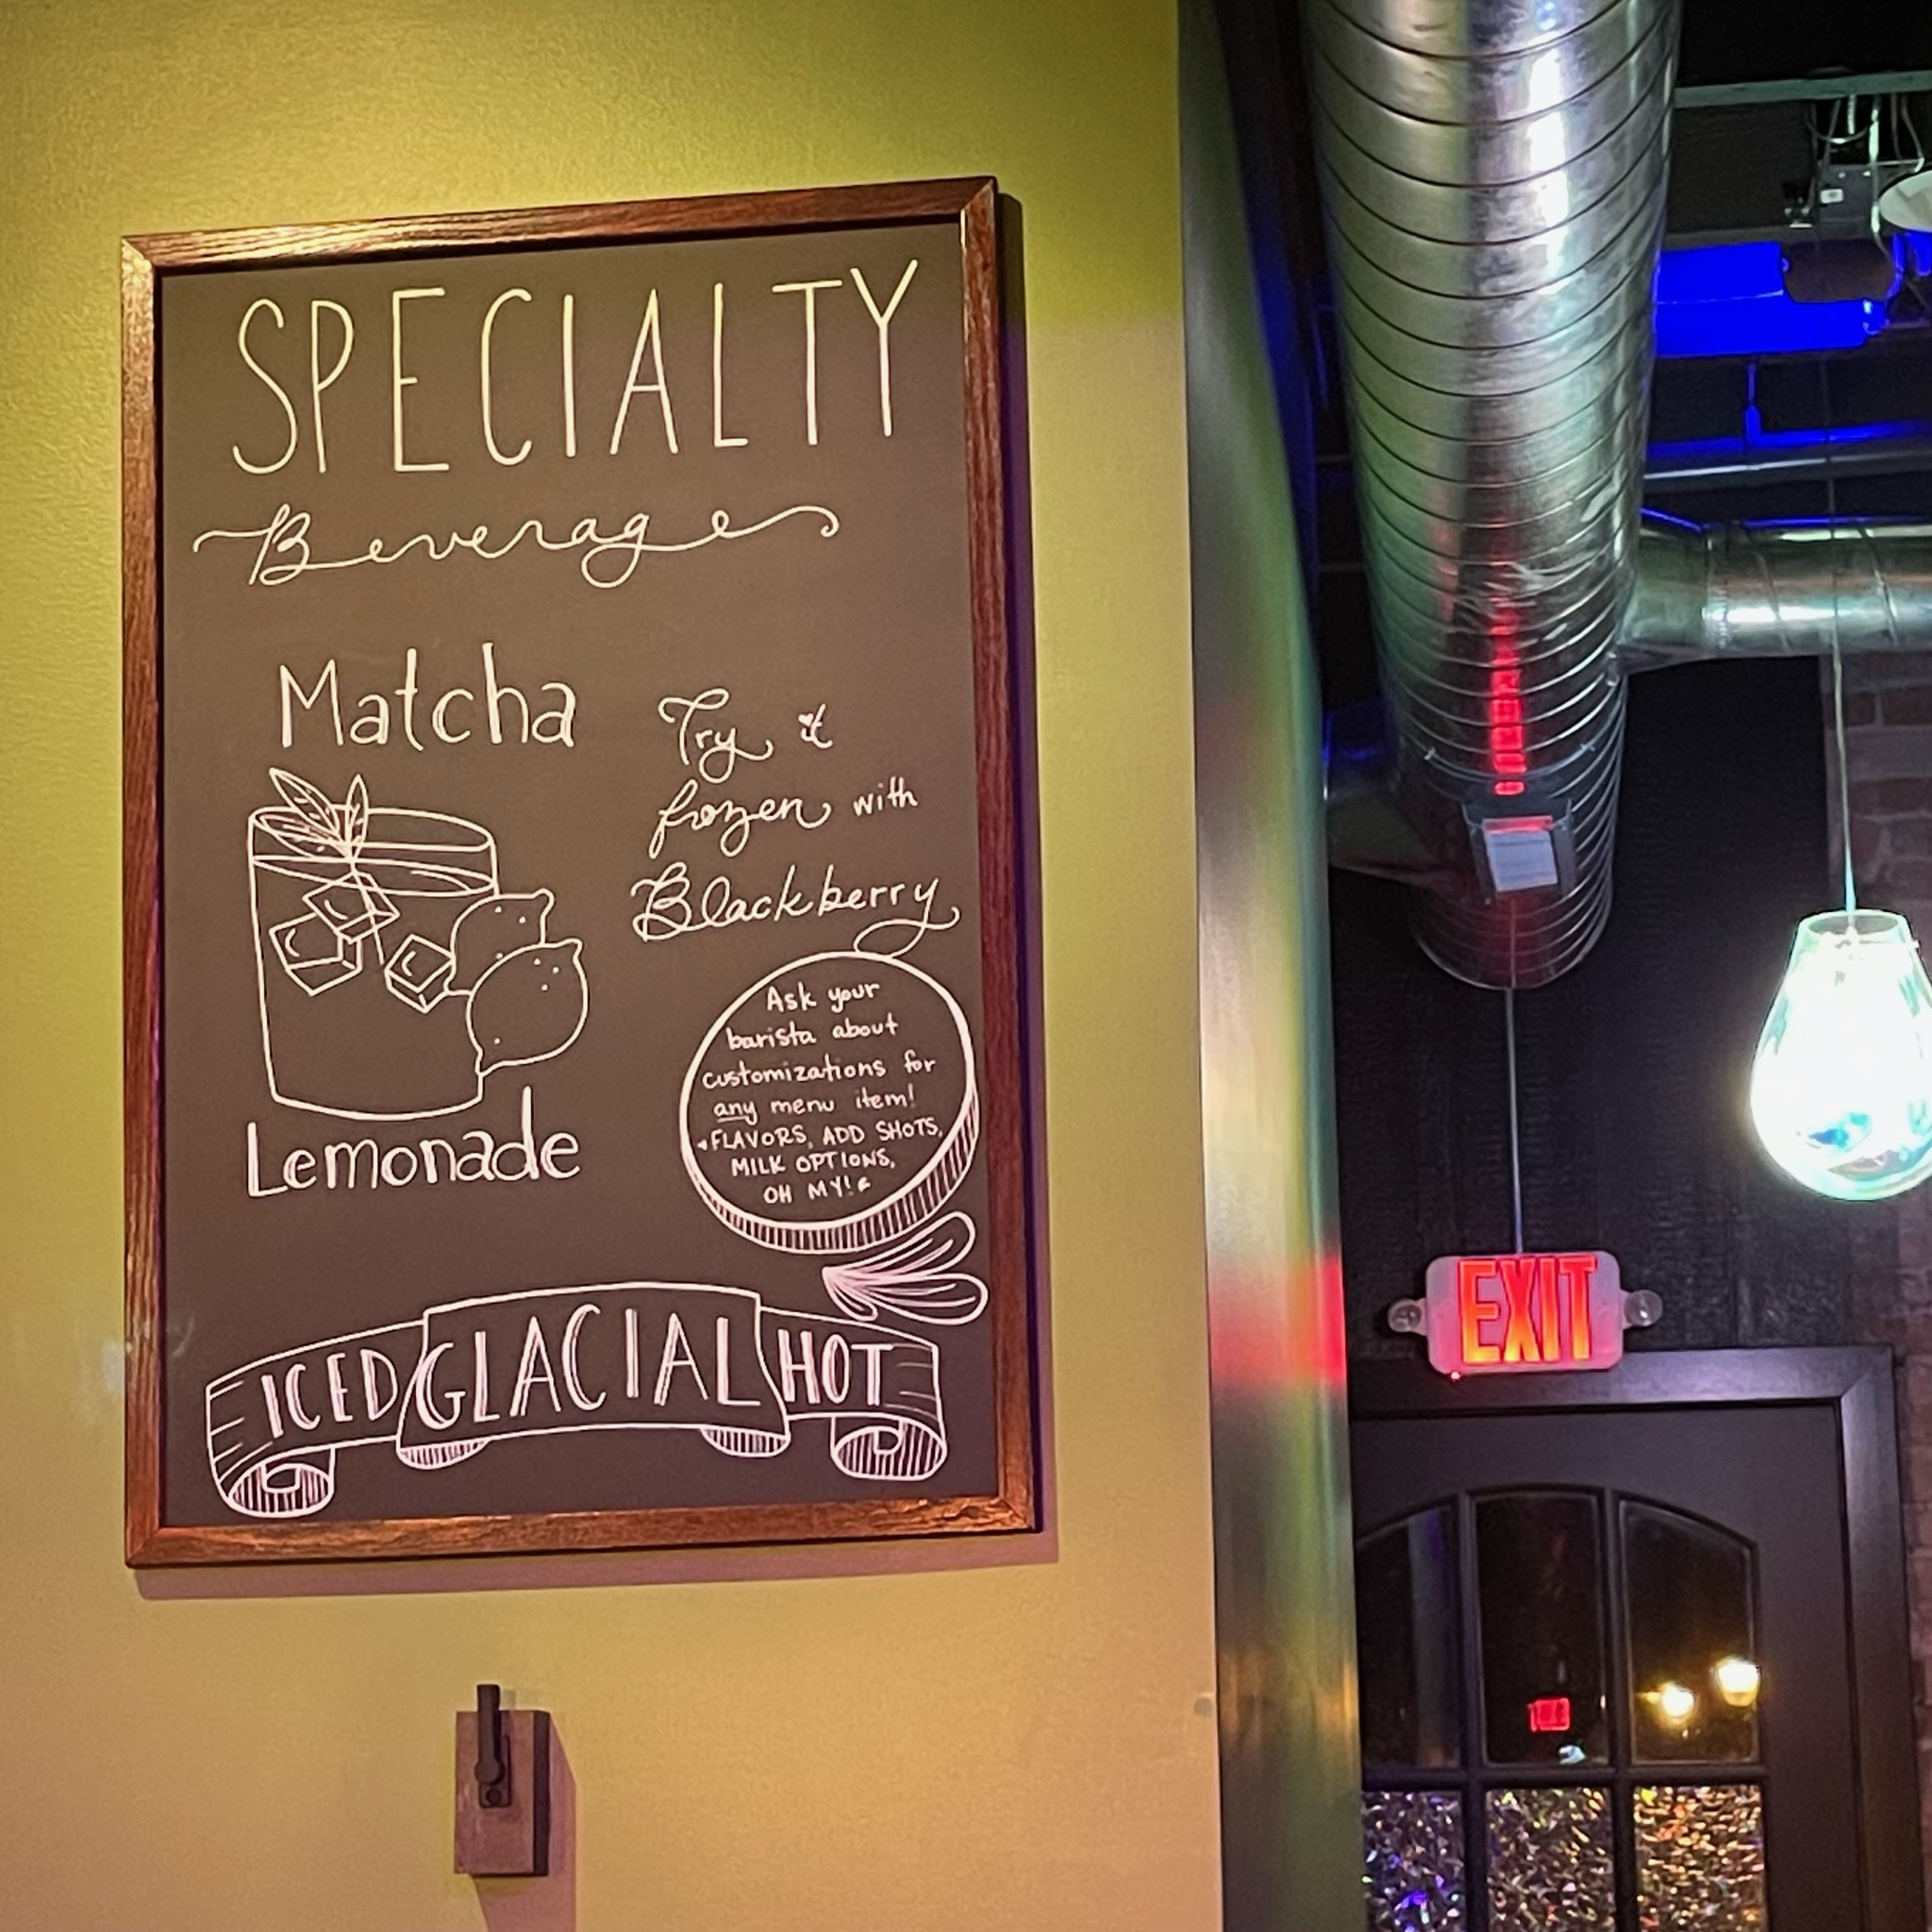 SPECIALTY
Beverage
Matcha
Lemonade
Try it
frozen with
Blackberry
Ask your
barista about
customizations for
any menu item!
FLAVORS, ADD SHOTS,
MILK OPTIONS,
OH MY!
ICED GLACIAL HOT
EXIT